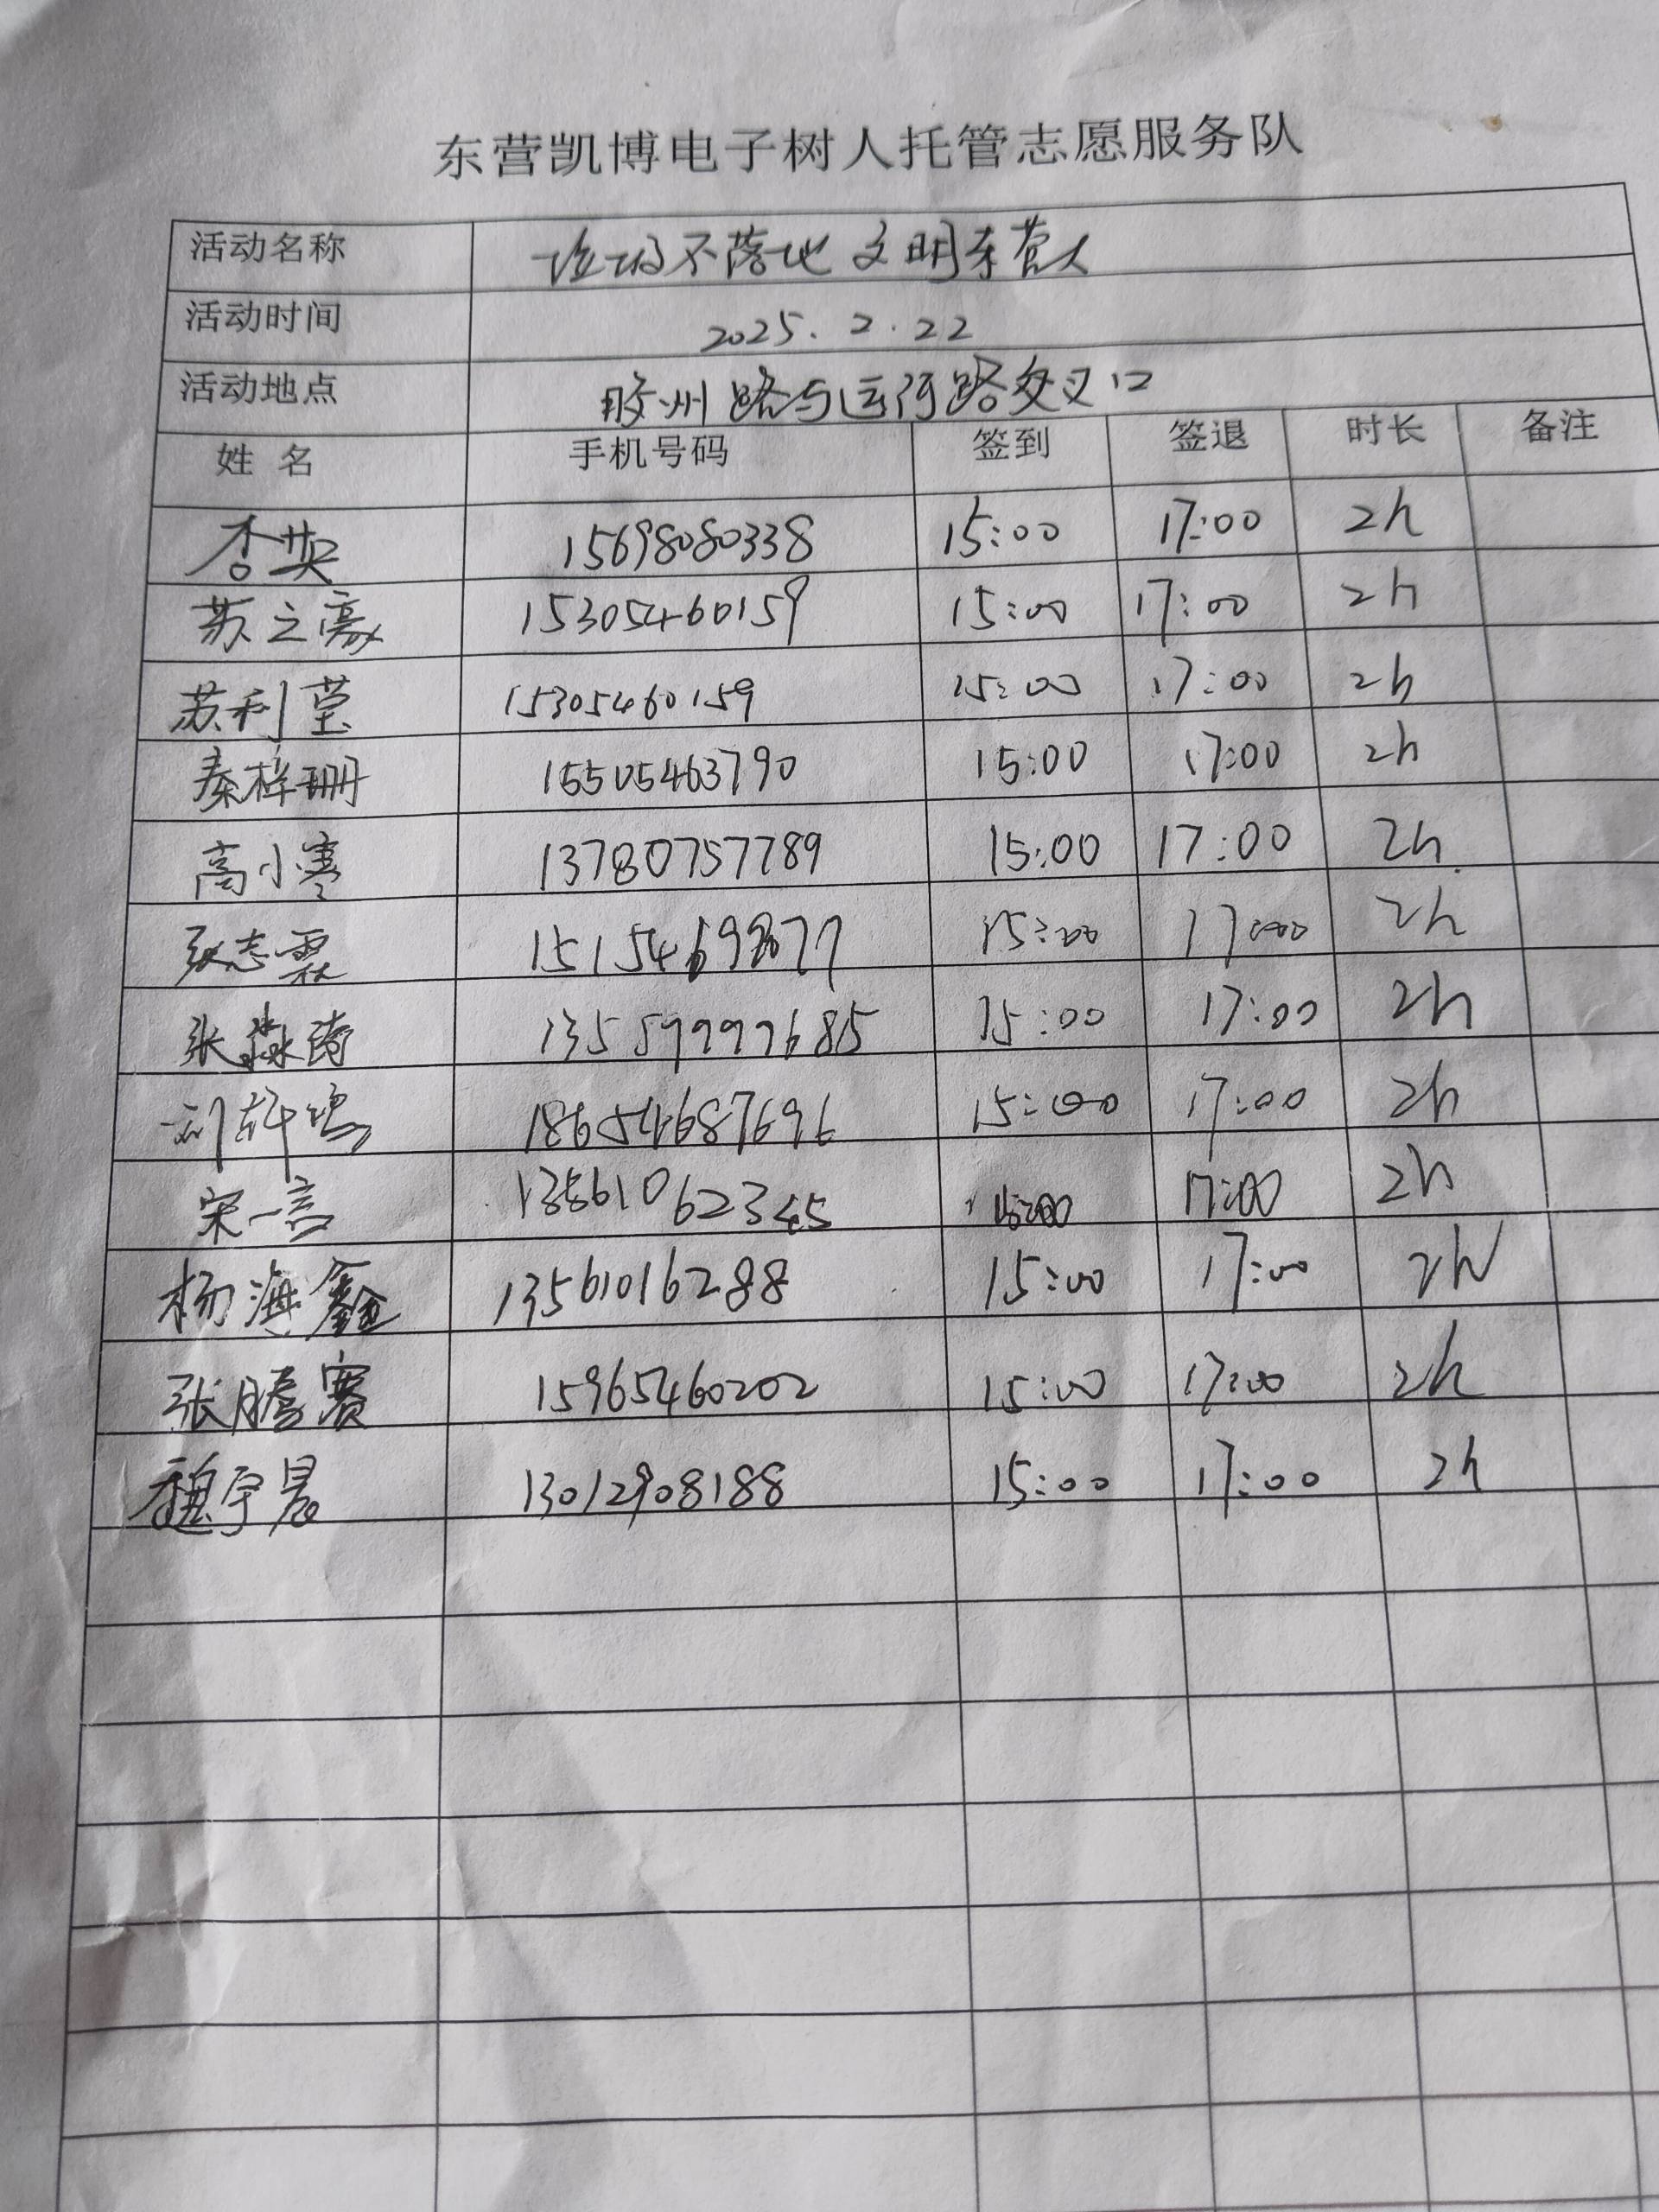 东营凯博电子树人托管志愿服务队
活动名称 垃圾不落地 文明东营人
活动时间 2025.2.22
活动地点 胶州路与运河路交叉口
姓 名 手机号码 签到 签退 时长 备注
杏英 15698080338 15:00 17:00 2h
苏之豪 15305460159 15:00 17:00 2h
苏利莹 15305460159 15:00 17:00 2h
秦梓珊 15505463790 15:00 17:00 2h
高小寒 13780757789 15:00 17:00 2h
张志霖 15:00 17:00 2h
张淼涛 13559999685 15:00 17:00 2h
18654687696 15:00 17:00 2h
宋一言 15:00 17:00 2h
杨海鑫 13561016288 15:00 17:00 2h
张腾赛 15965460202 15:00 17:00 2h
魏宇晨 13012908188 15:00 17:00 2h